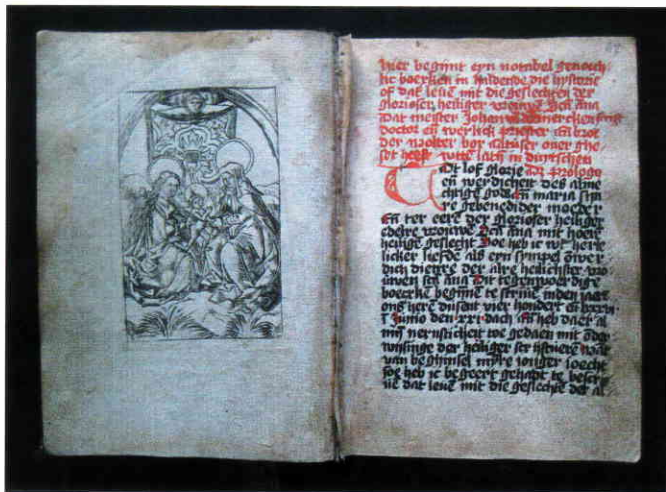 hier begint eyn notabel genoech
lic boexken in haldende die hystorie
of dat leuē mit die geslechten der
glorioser heiliger vrouwē sen̄ ana
dat meister Johan
doctor en̄ werlick priester en̄ broe
der oouer ghe
set heeft wttē latij̄ in duytschen
prologo
lof glorie
en̄ werdicheit des alme
chtige gods en̄ maria sijn
re gebenedider moeder
En̄ ter eere der glorioser heiliger
edelre vrouwē sen̄ ana mit hoere
heilige geslecht Soe heb ic wt herte
licker liefde als eyn sympel ōwer
dich dienre der alre heilichster vro
uwen sen̄ ana Dit tegenwoerdige
boexkē begīnē te scriuē inden iaer
ons herē dusent vier hondert en̄
Junio den dach en̄ heb daer al
mij nernsticheit toe gedaen mit ōder
wijsinge der heiliger scrifturē want
van beghinsel mijre ionger ioecht
soe heb ic begeert gehadt te bescr
uē dat leuē mit die geslechte der al